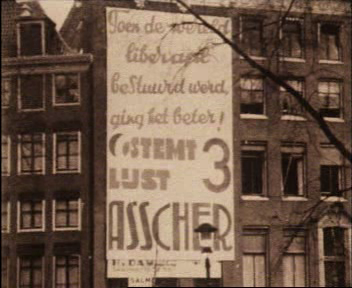 Toen de wereld
liberaal
bestuurd werd,
ging het beter!
STEMT 3
LIJST
ASSCHER